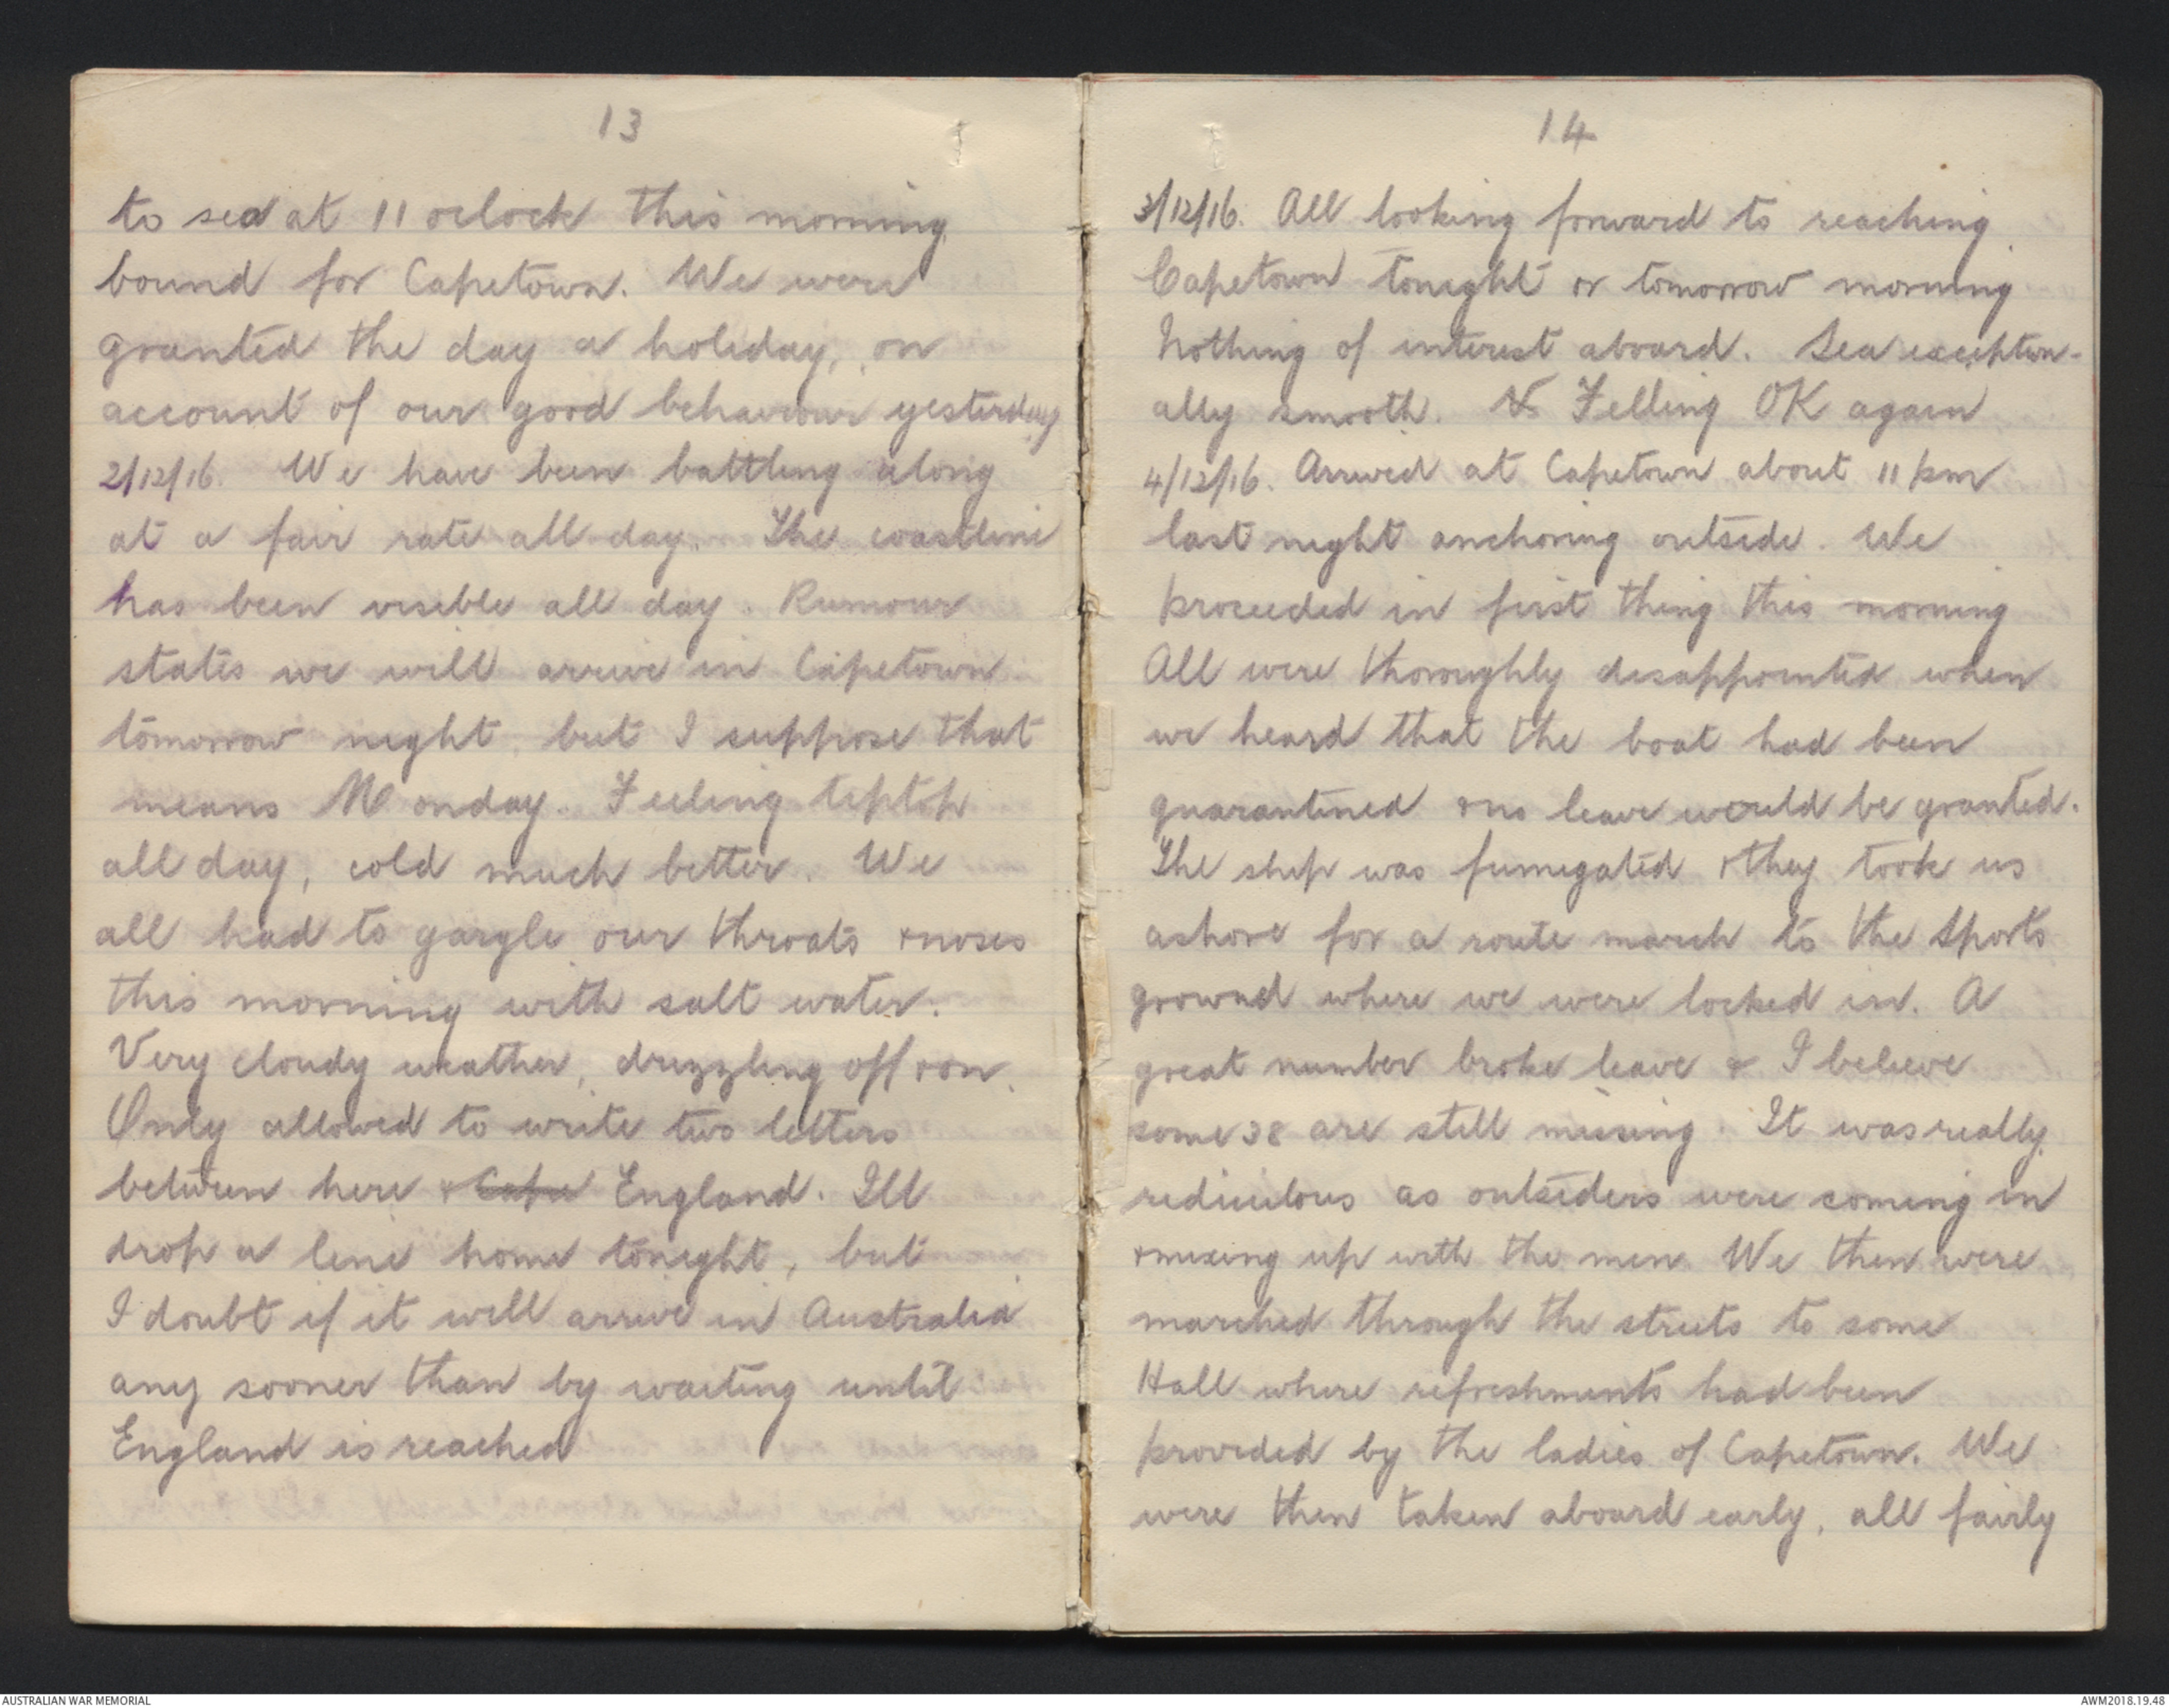 13
to sea at 11 oclock this morning
bound for Capetown. We were
granted the day a holiday, on
account of our good behaviour yesterday
2/12/16. We have been battling along
at a fair rate all day. The coastline
has been visible all day. Rumour
states we will arrive in Capetown
tomorrow night, but I suppose that
means Monday. Feeling tiptop
all day, cold much better. We
all had to gargle our throats & noses
this morning with salt water.
Very cloudy weather, drizzling off & on.
Only allowed to write two letters
between here & Cape England. Ill
drop a line home tonight, but
I doubt if it will arrive in Australia
any sooner than by waiting until
England is reached
14
3/12/16. All looking forward to reaching
Capetown tonight or tomorrow morning
Nothing of interest aboard. Sea exception-
ally smooth. & Felling OK again
4/12/16. Arrived at Capetown about 11 pm
last night anchoring outside. We
proceeded in first thing this morning
All were thoroughly disappointed when
we heard that the boat had been
quarantined & no leave would be granted.
The ship was fumegated & they took us
ashore for a route march to the Sports
ground where we were locked in. A
great number broke leave & I believe
some 38 are still missing. It was really
rediculous as outsiders were coming in
& mixing up with the men We then were
marched through the streets to some
Hall where refreshments had been
provided by the ladies of Capetown. We
were then taken aboard early, all fairly
AUSTRALIAN WAR MEMORIAL
AWM2018.19.48